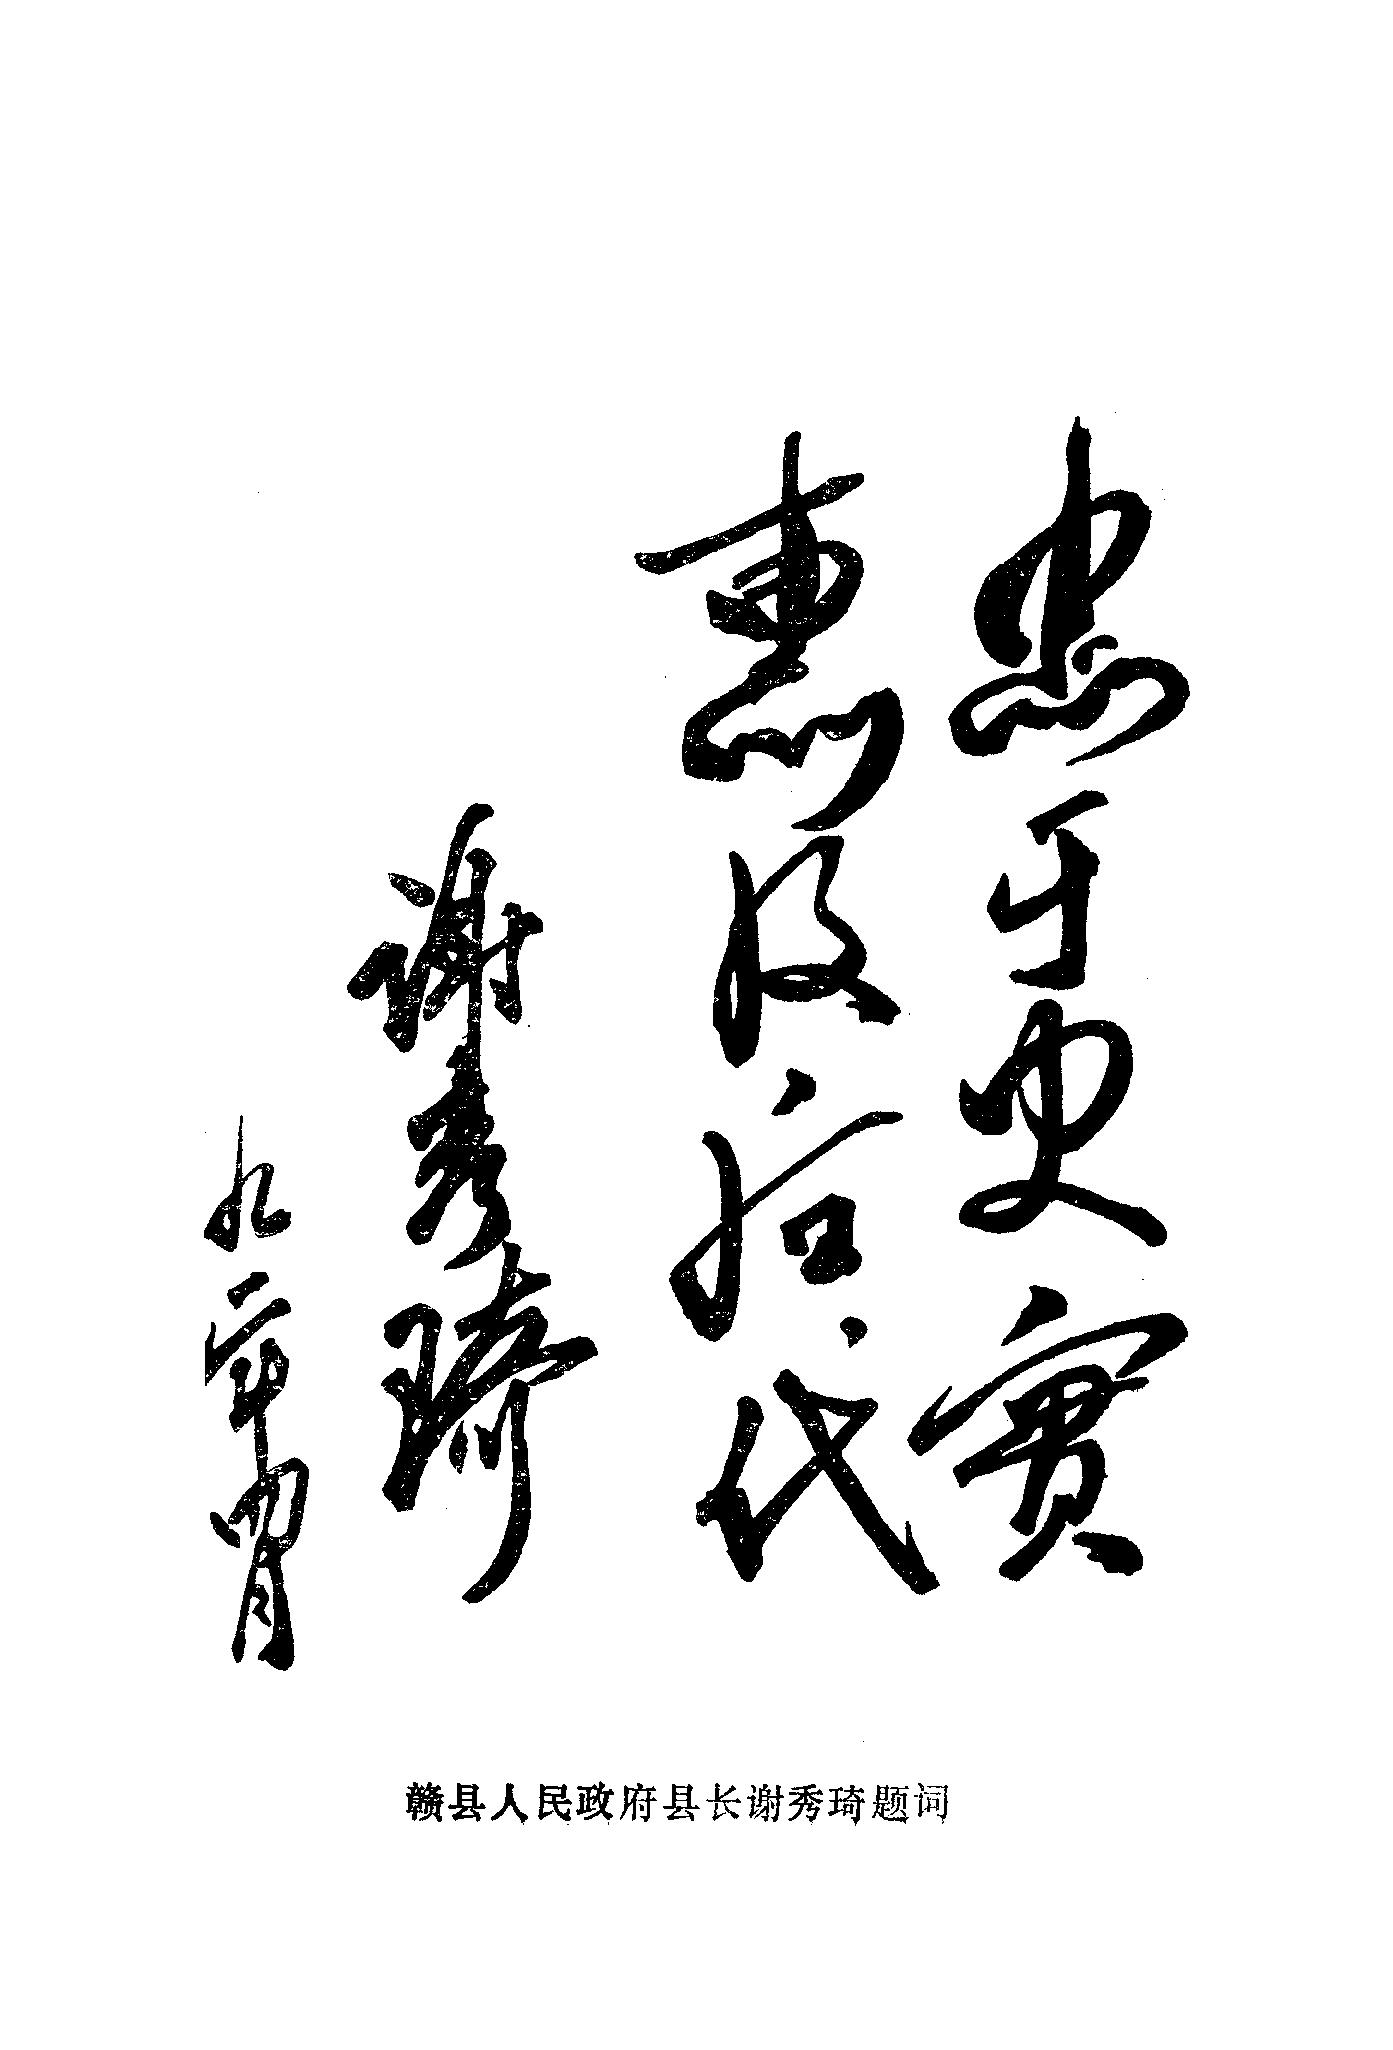 忠于史实
惠及后代
谢秀琦
九二年四月
赣县人民政府县长谢秀琦题词